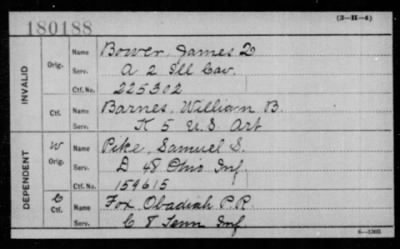 180188
(3-H-4)
INVALID
Orig.
Name Bower, James D
Serv. A 2 Ill Cav.
Ctf. No. 225302
Ctf. Name Barnes, William B.
Serv. K 5 U.S. Art
DEPENDENT
W Orig.
Name Pike, Samuel S.
Serv. D 48 Ohio Inf.
Ctf. No. 159615
C Ctf.
Name Fox Obadiah P.R.
Serv. C 8 Tenn Inf